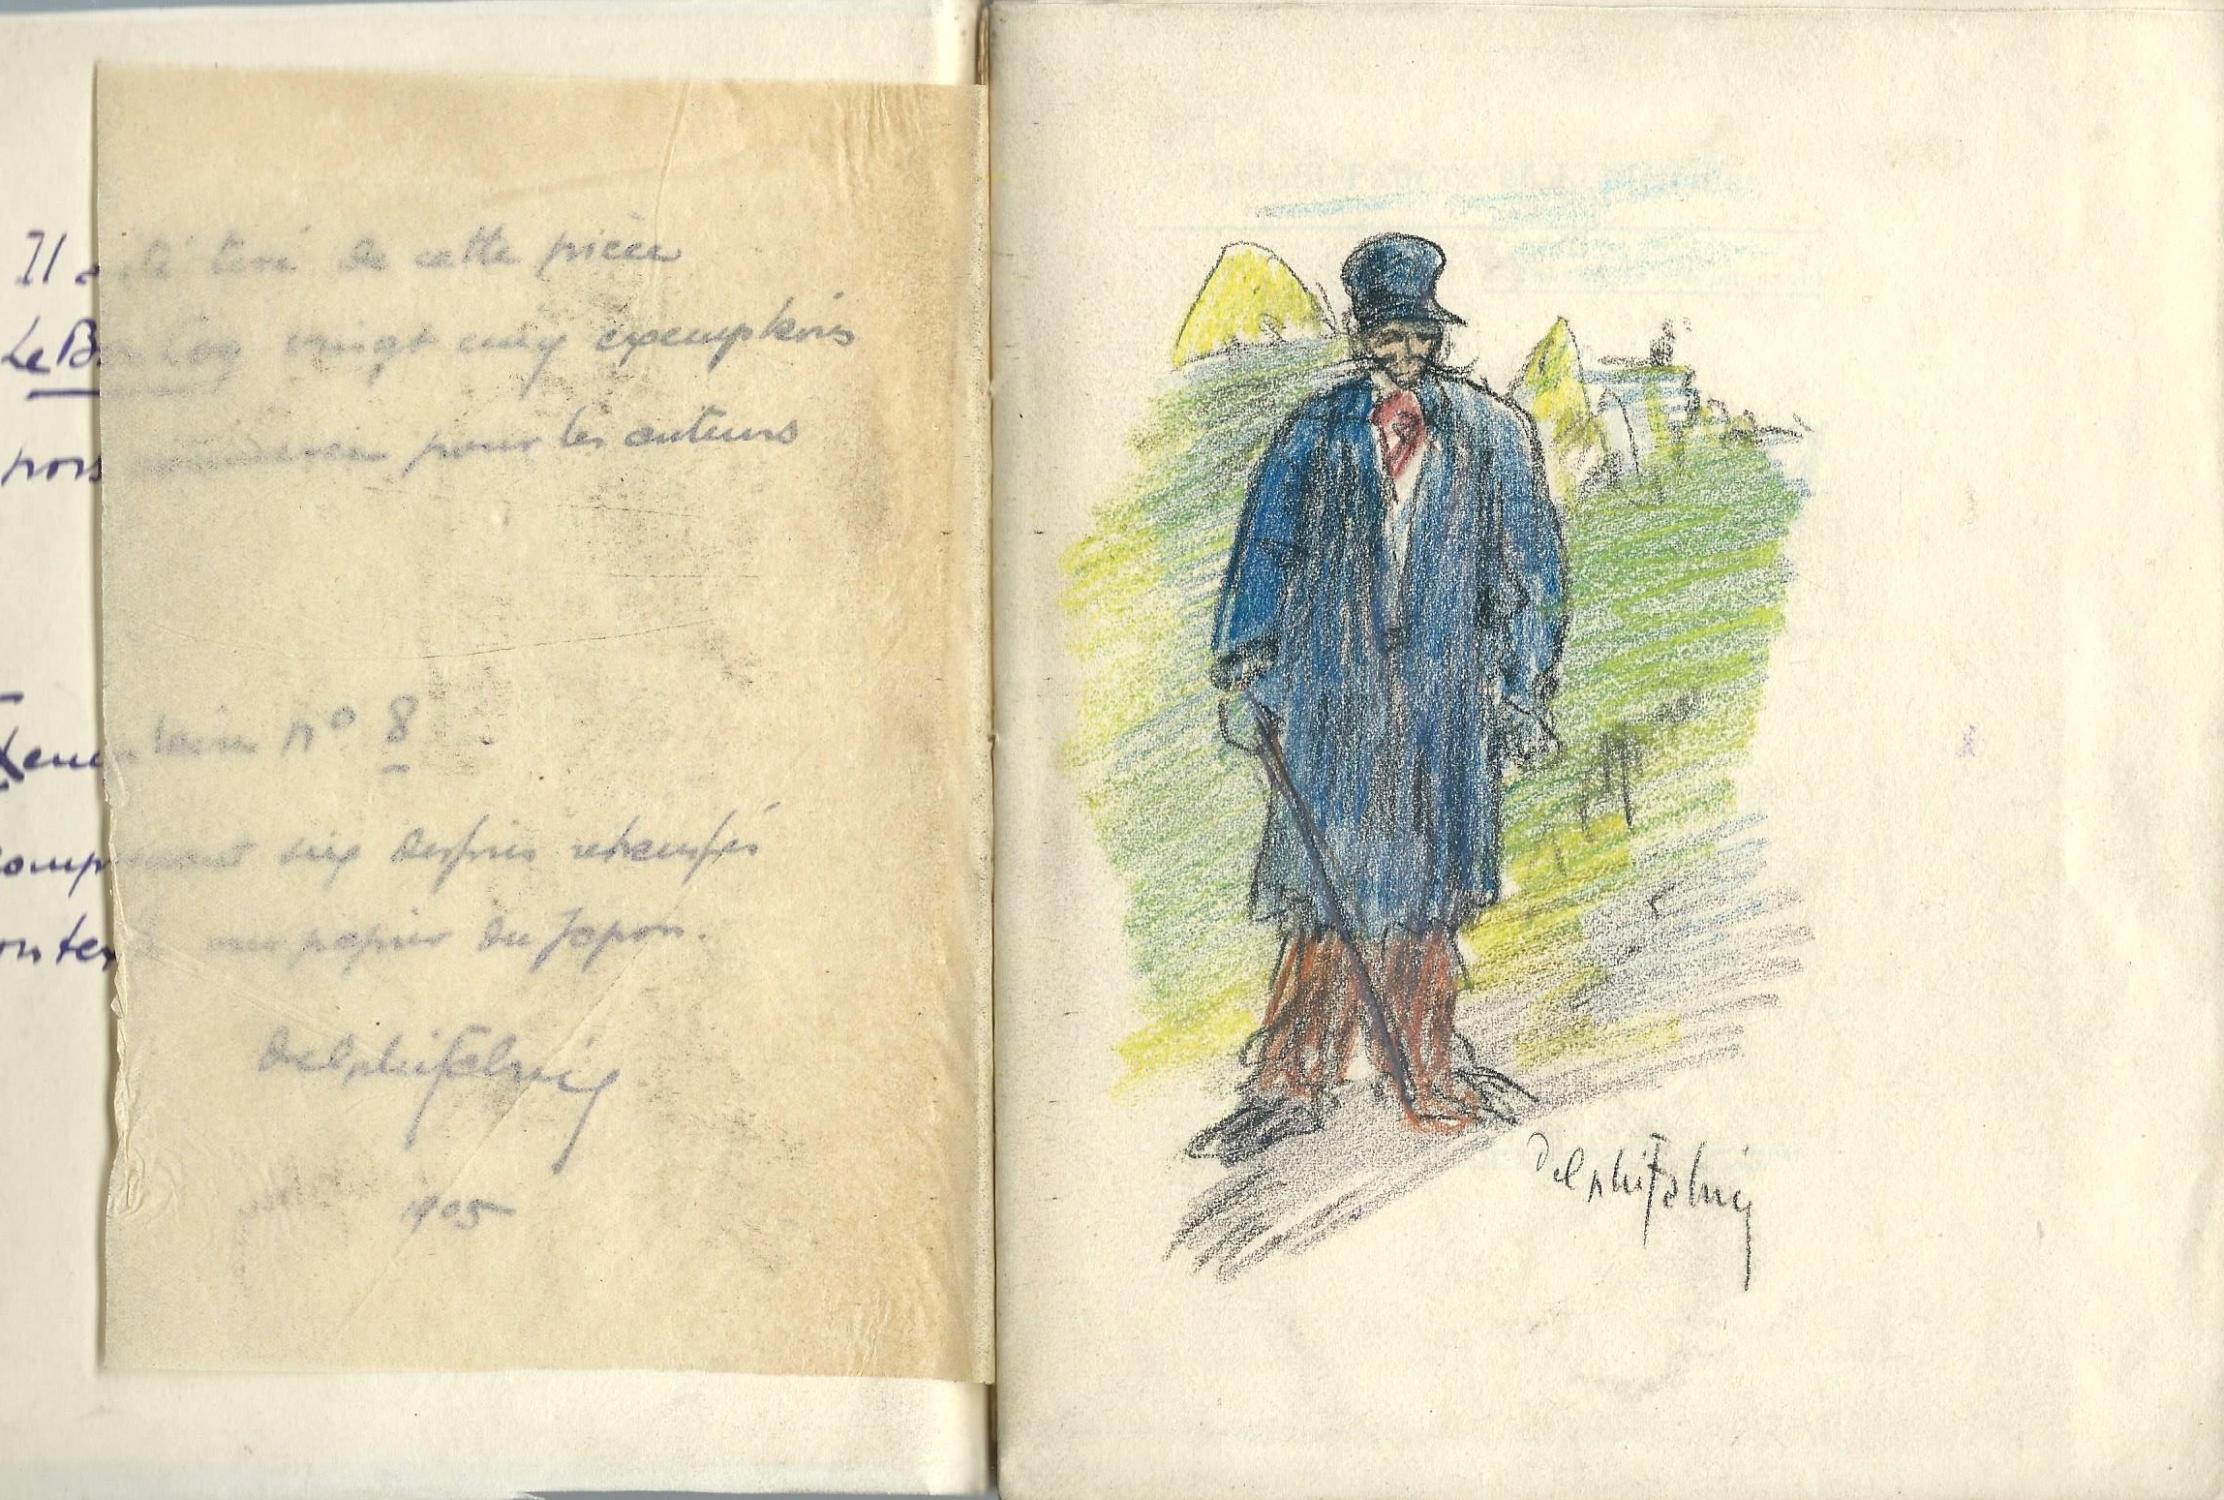 Il a été tiré de cette pièce
Le Bon Coq vingt cinq exemplaires
hors commerce pour les auteurs
Exemplaire n° 8
comprenant six dessins rehaussés
sur papier du Japon.
Delphi Fabrice
1905
Delphi Fabrice